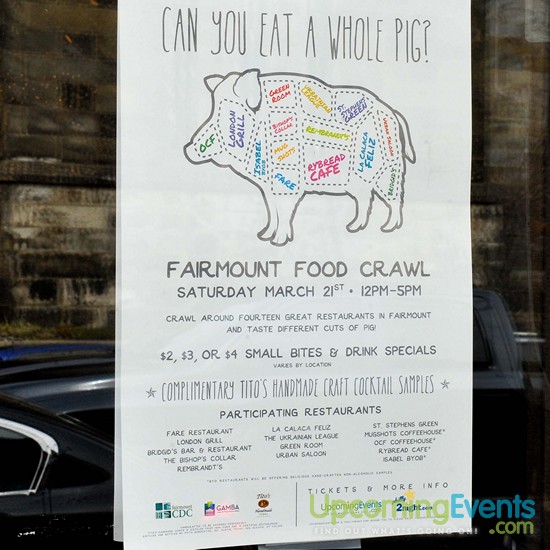 CAN YOU EAT A WHOLE PIG?
GREEN ROOM
UKRAINIAN LEAGUE
ST. STEPHENS GREEN
URBAN SALOON
OCF
LONDON GRILL
BISHOP'S COLLAR
REMBRANDT'S
LA CALACA FELIZ
ISABEL BYOB
MUG SHOTS
FARE
RYBREAD CAFE
BRIDGID'S
FAIRMOUNT FOOD CRAWL
SATURDAY MARCH 21ST • 12PM-5PM
CRAWL AROUND FOURTEEN GREAT RESTAURANTS IN FAIRMOUNT
AND TASTE DIFFERENT CUTS OF PIG!
$2, $3, OR $4 SMALL BITES & DRINK SPECIALS
VARIES BY LOCATION
COMPLIMENTARY TITO'S HANDMADE CRAFT COCKTAIL SAMPLES
PARTICIPATING RESTAURANTS
FARE RESTAURANT
LONDON GRILL
BRIDGID'S BAR & RESTAURANT
THE BISHOP'S COLLAR
REMBRANDT'S
LA CALACA FELIZ
THE UKRAINIAN LEAGUE
GREEN ROOM
URBAN SALOON
ST. STEPHENS GREEN
MUGSHOTS COFFEEHOUSE*
OCF COFFEEHOUSE*
RYBREAD CAFE*
ISABEL BYOB*
*BYO RESTAURANTS WILL BE OFFERING DELICIOUS HAND-CRAFTED NON-ALCOHOLIC SAMPLES
fairmount CDC
GAMBA
Tito's Handmade
TICKETS & MORE INFO
UpcomingEvents
2night
UpcomingEvents.com
FIND OUT WHAT'S GOING ON!